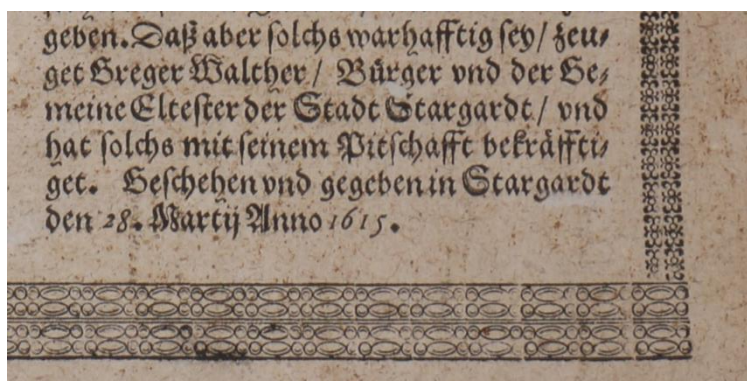 geben. Daß aber solchs warhafftig sey/ zeu-
get Greger Walther/ Bürger vnd der Ge-
meine Eltester der Stadt Stargardt/ vnd
hat solchs mit seinem Pitschafft bekräffti-
get. Geschehen vnd gegeben in Stargardt
den 28. Martij Anno 1615.